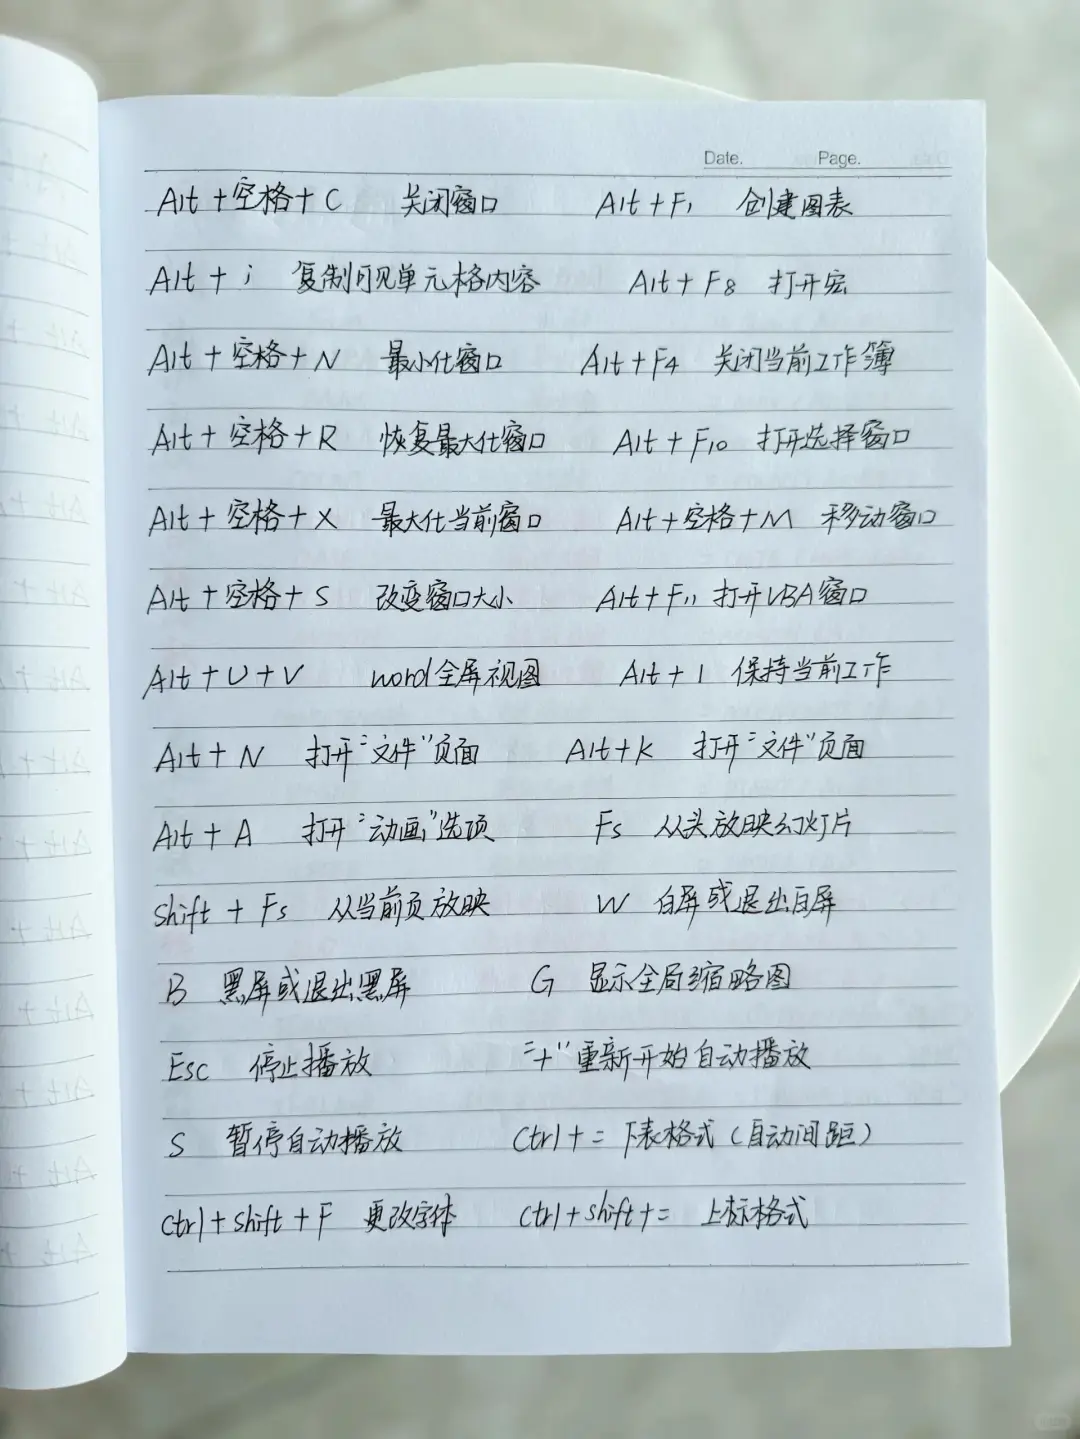 Date. Page.
Alt+空格+C 关闭窗口 Alt+F1 创建图表
Alt+i 复制可见单元格内容 Alt+F8 打开宏
Alt+空格+N 最小化窗口 Alt+F4 关闭当前工作簿
Alt+空格+R 恢复最大化窗口 Alt+F10 打开选择窗口
Alt+空格+X 最大化当前窗口 Alt+空格+M 移动窗口
Alt+空格+S 改变窗口大小 Alt+F11 打开VBA窗口
Alt+U+V word全屏视图 Alt+1 保持当前工作
Alt+N 打开“文件”页面 Alt+K 打开“文件”页面
Alt+A 打开“动画”选项 F5 从头放映幻灯片
Shift+F5 从当前页放映 W 白屏或退出白屏
B 黑屏或退出黑屏 G 显示全局缩略图
Esc 停止播放 “+”重新开始自动播放
S 暂停自动播放 Ctrl+= 下表格式(自动间距)
Ctrl+Shift+F 更改字体 Ctrl+Shift+= 上标格式